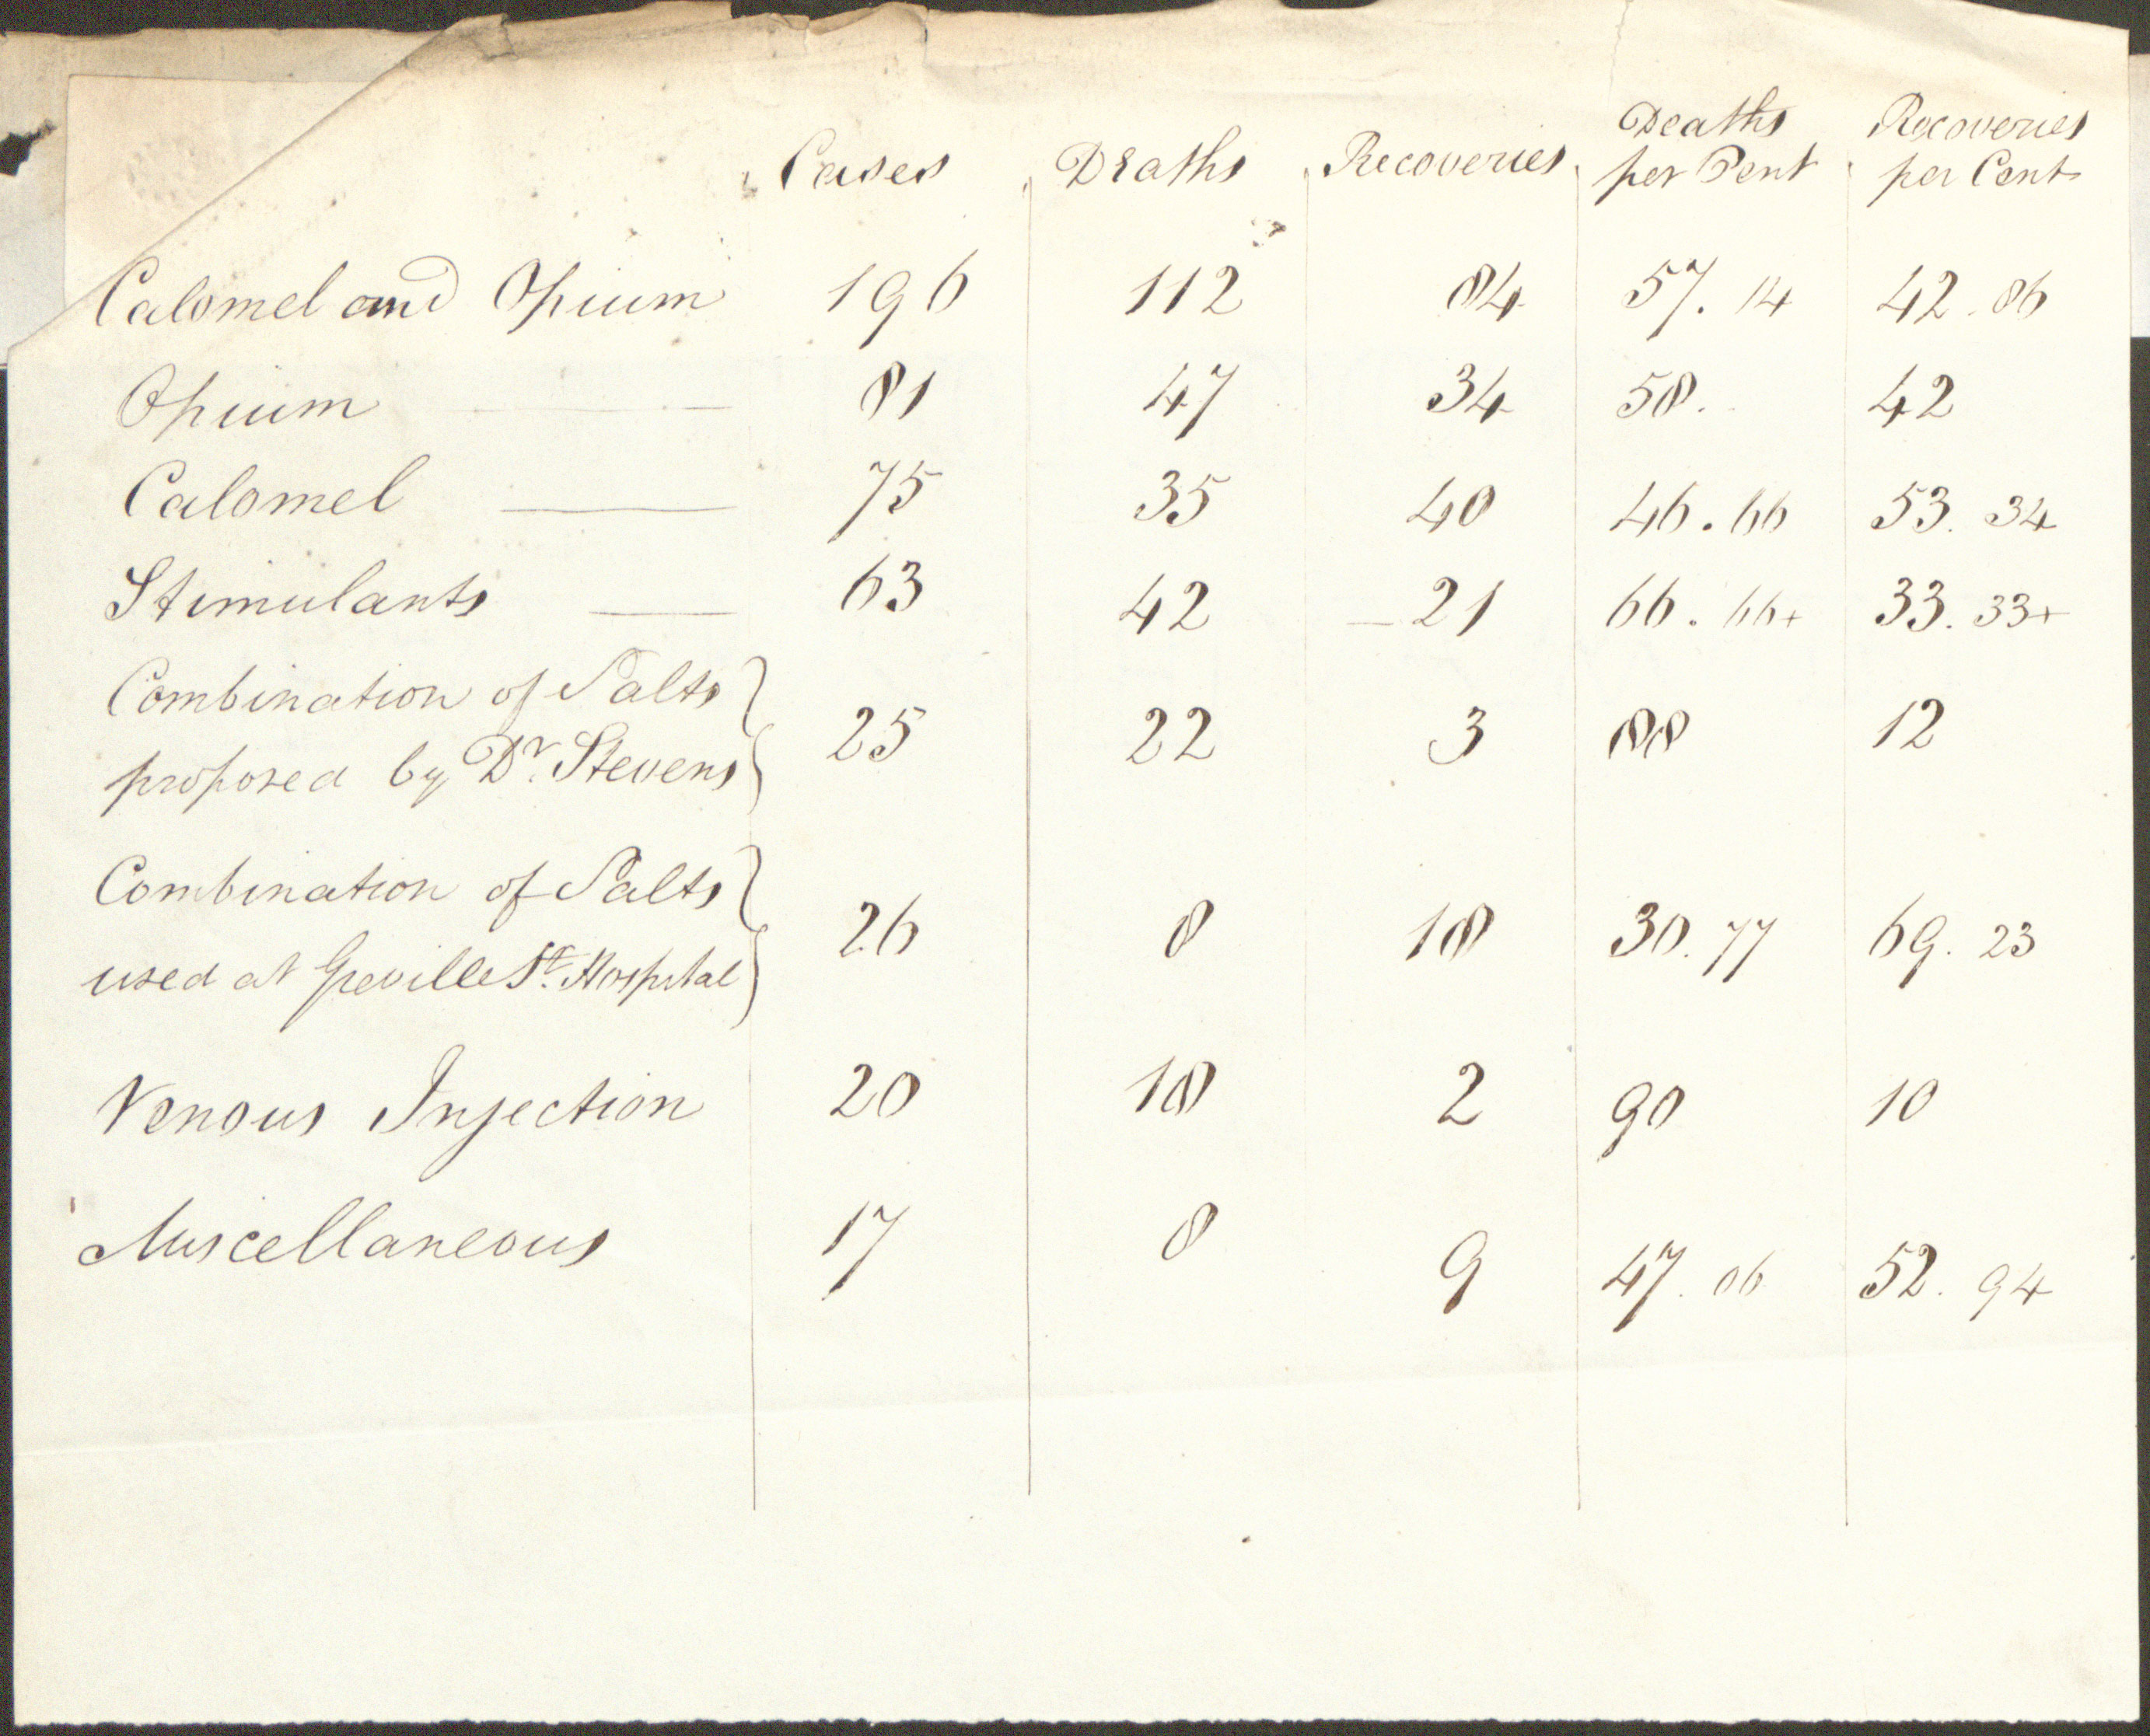 Cases Deaths Recoveries Deaths per Cent Recoveries per Cent
Calomel and Opium 196 112 84 57.14 42.86
Opium 81 47 34 58. 42
Calomel 75 35 40 46.66 53.34
Stimulants 63 42 21 66.66+ 33.33+
Combination of Salts
proposed by Dr. Stevens 25 22 3 88 12
Combination of Salts
used at Greville St. Hospital 26 8 18 30.77 69.23
Venous Injection 20 18 2 90 10
Miscellaneous 17 8 9 47.06 52.94